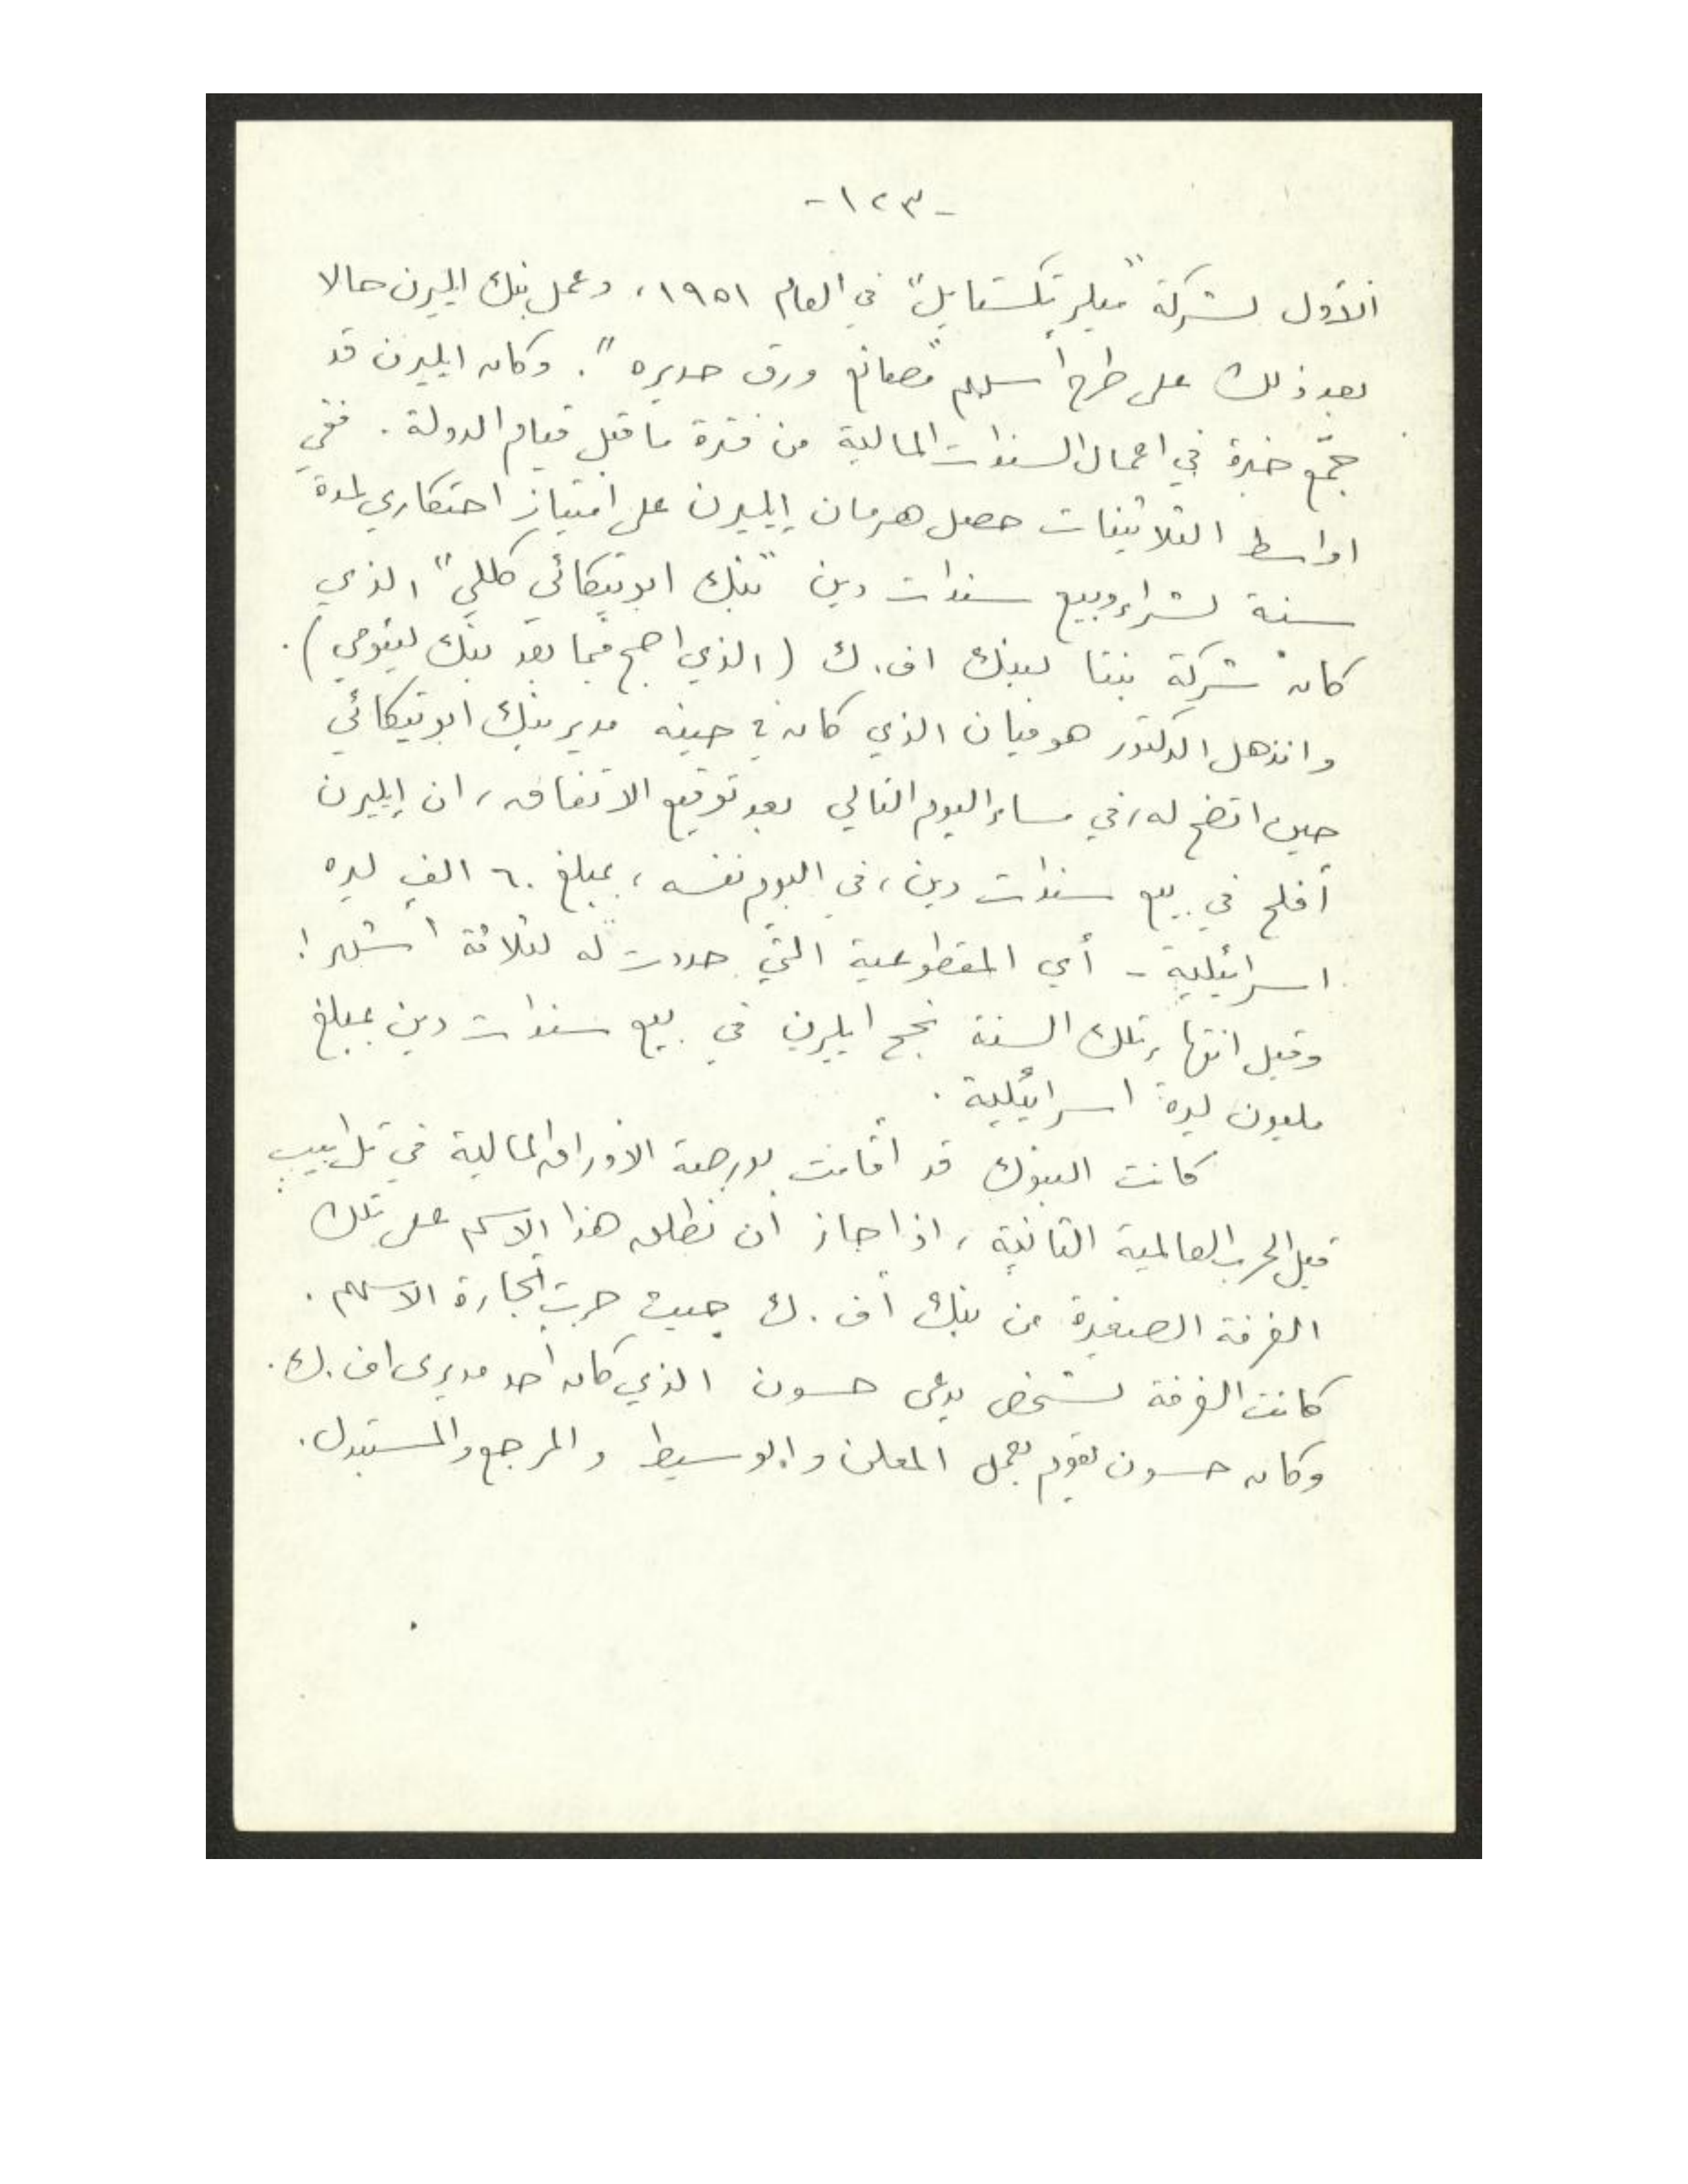 -١٢٣-
الأول لشركة "ميلر تكستايل" في العام ١٩٥١، وعمل بنك ايليرن حالا
بعد ذلك على طرح أسهم "مصانع ورق حديره". وكان ايليرن قد
جمّع خبرة في اعمال السندات المالية من فترة ما قبل قيام الدولة. ففي
اواسط الثلاثينات حصل هرمان إيليرن على امتياز احتكاري لمدة
سنة لشراء وبيع سندات دين "بنك ابوتيكائي كللي" الذي
كان شركة بنتا لبنك اف. ك (الذي اصبح فيما بعد بنك ليئومي).
وانذهل الدكتور هوفيان الذي كان في حينه مدير بنك ابوتيكائي
حين اتضح له، في مساء اليوم التالي بعد توقيع الاتفاق، ان إيليرن
أفلح في بيع سندات دين، في اليوم نفسه، بمبلغ ٦٠ الف ليره
اسرائيلية - أي المقطوعية التي حددت له لثلاثة أشهر!
وقبل انتهاء تلك السنة نجح ايليرن في بيع سندات دين بمبلغ
مليون ليرة اسرائيلية.
كانت البنوك قد اقامت بورصة الاوراق المالية في تل ابيب
قبل الحرب العالمية الثانية، اذا جاز أن نطلق هذا الاسم على تلك
الغرفة الصغيرة من بنك أف. ك حيث جرت تجارة الاسهم.
كانت الغرفة لشخص يدعى حسون الذي كان أحد مديرى اف. ك.
وكان حسون يقوم بعمل المعلن والوسيط والمرجع والمستبدل.